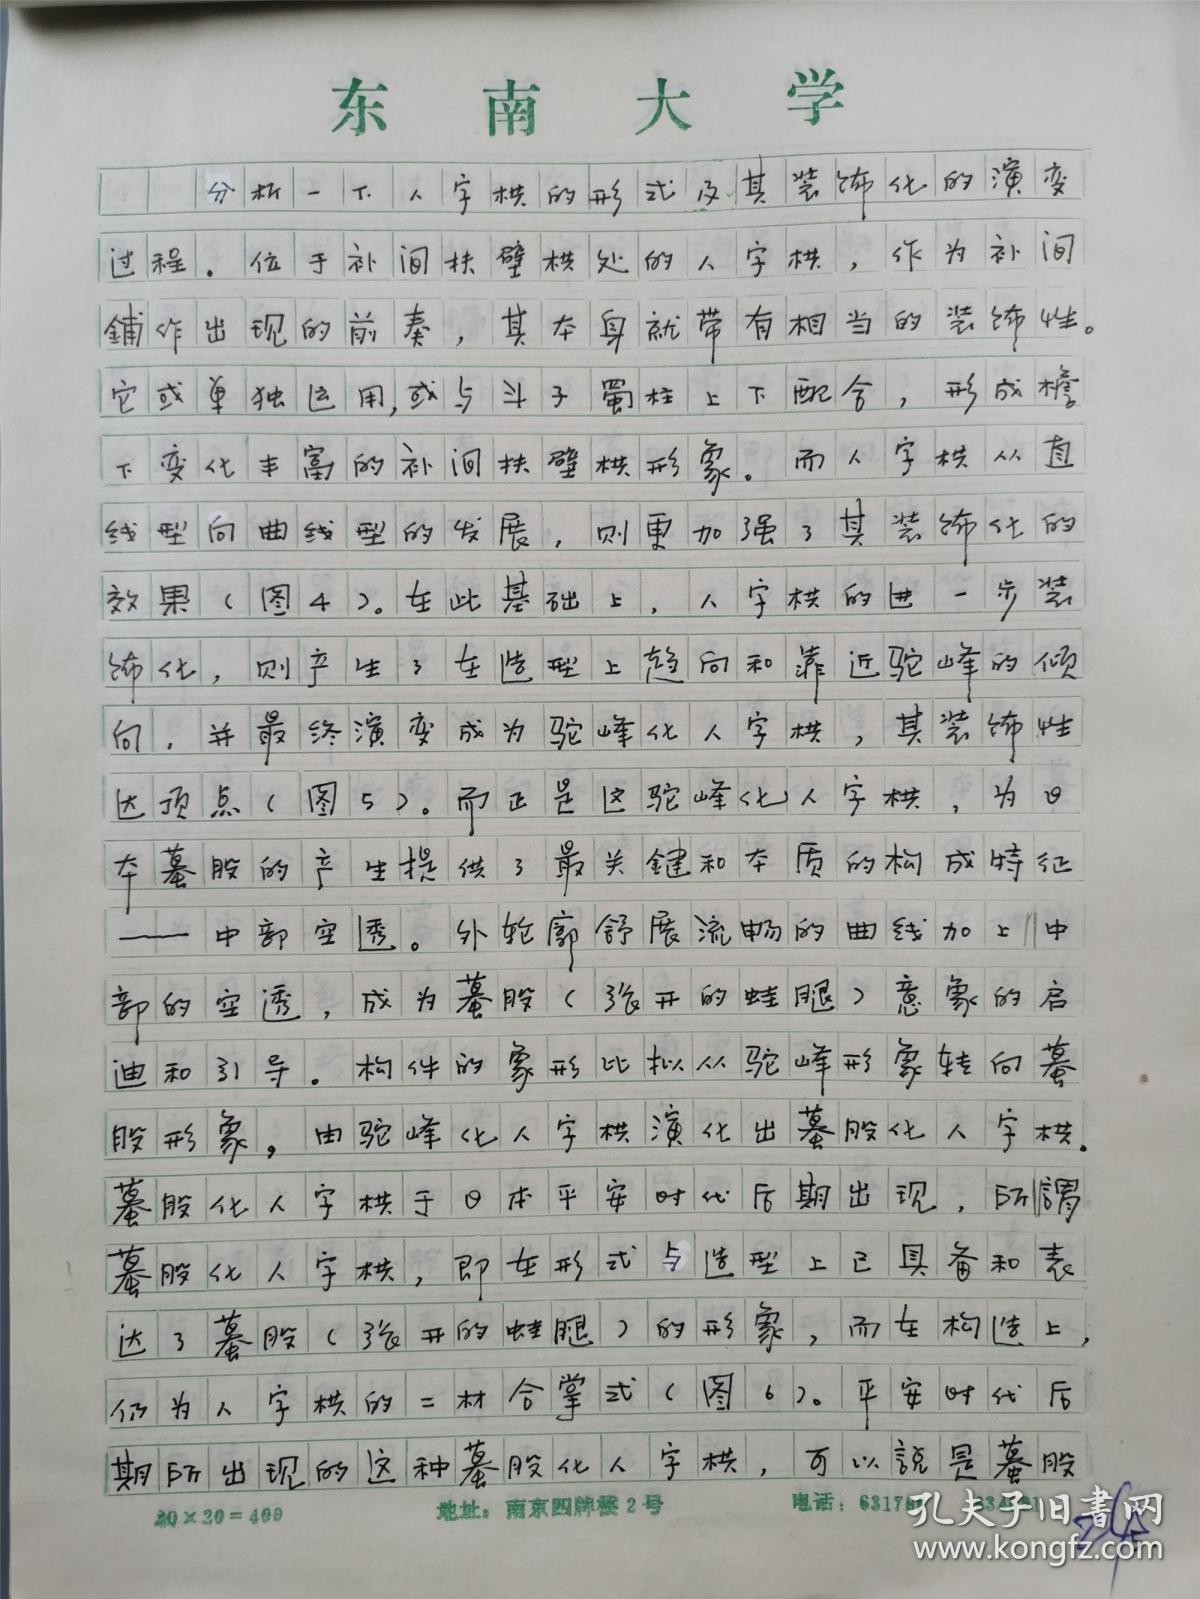 东南大学
分析一下人字栱的形式及其装饰化的演变
过程。位于补间扶壁栱处的人字栱，作为补间
鋪作出现的前奏，其本身就带有相当的装饰性。
它或单独运用，或与斗子蜀柱上下配合，形成檐
下变化丰富的补间扶壁栱形象。而人字栱从直
线型向曲线型的发展，则更加强了其装饰化的
效果（图4）。在此基础上，人字栱的进一步装
饰化，则产生了在造型上趋向和靠近驼峰的倾
向，并最终演变成为驼峰化人字栱，其装饰性
达顶点（图5）。而正是这驼峰化人字栱，为日
本蟇股的产生提供了最关鍵和本质的构成特征
——中部空透。外轮廓舒展流畅的曲线加上中
部的空透，成为蟇股（張开的蛙腿）意象的启
迪和引导。构件的象形比拟从驼峰形象转向蟇
股形象，由驼峰化人字栱演化出蟇股化人字栱。
蟇股化人字栱于日本平安时代后期出现，所謂
蟇股化人字栱，即在形式与造型上已具备和表
达了蟇股（張开的蛙腿）的形象，而在构造上，
仍为人字栱的二材合掌式（图6）。平安时代后
期所出现的这种蟇股化人字栱，可以説是蟇股
20×20=400 地址：南京四牌楼2号 电话：63176
孔夫子旧书网
www.kongfz.com